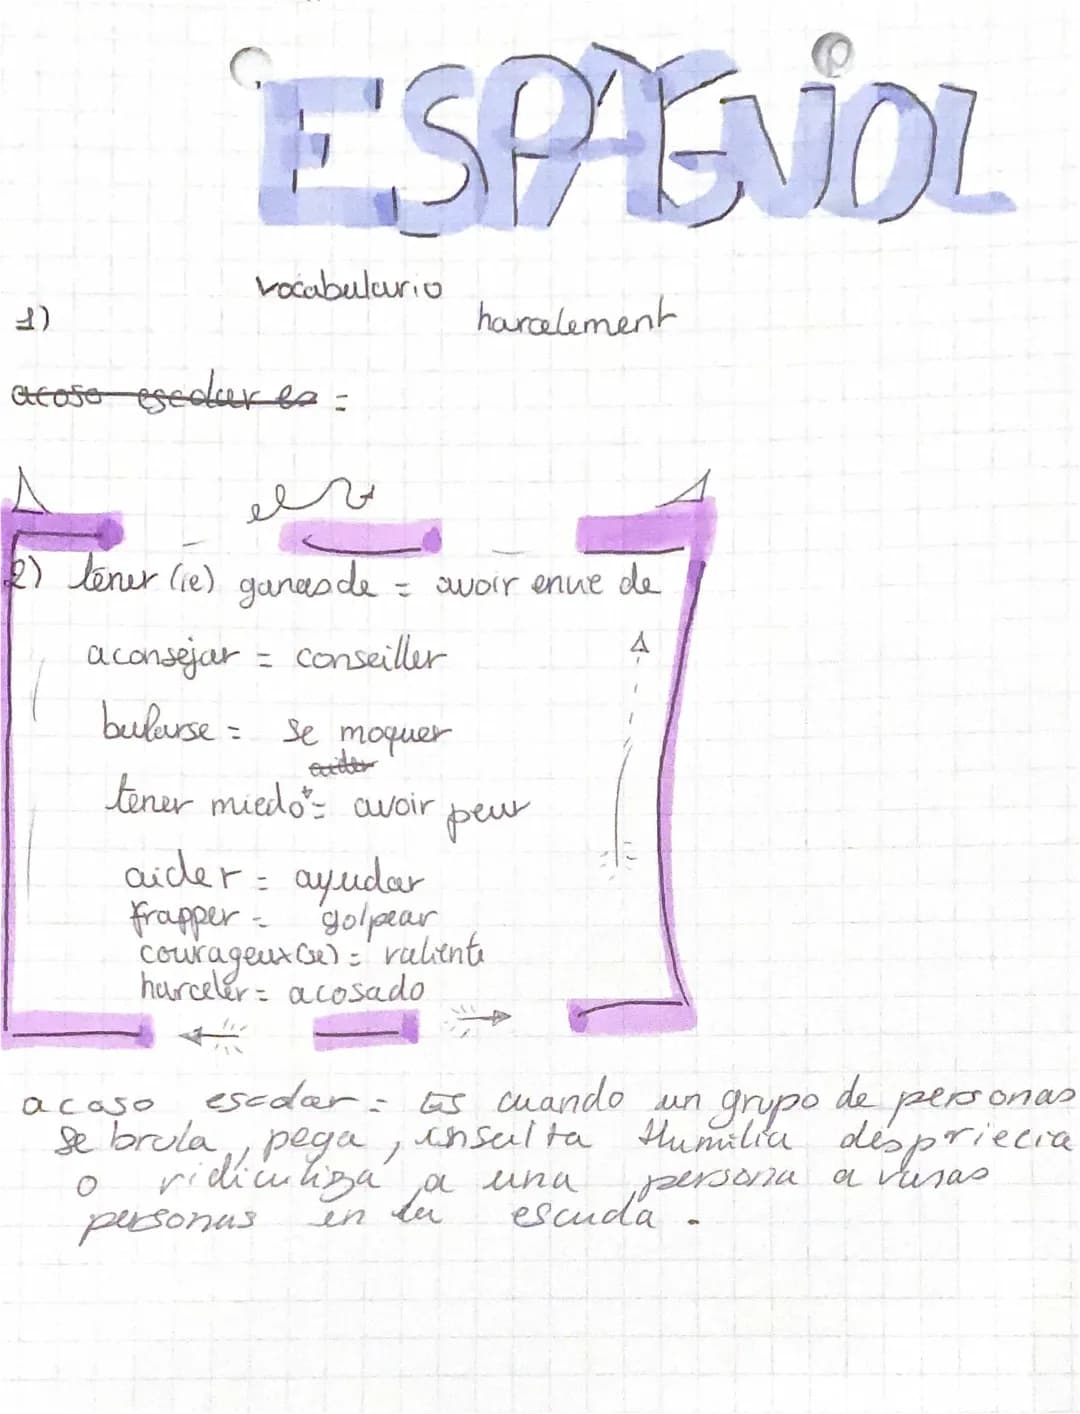 ESPAGNOL
vocabulario
1) harcelement
acoso escolar es =
2) tener (ie) ganas de = avoir envie de
aconsejar = conseiller
burlarse = se moquer
aider
tener miedo = avoir peur
aider = ayudar
frapper = golpear
courageux(se) = valiente
harceler = acosado
acoso escolar = Es cuando un grupo de personas
se brula, pega, insulta Humilia despriecia
o ridiculiza a una persona a varias
personas en la escuela.